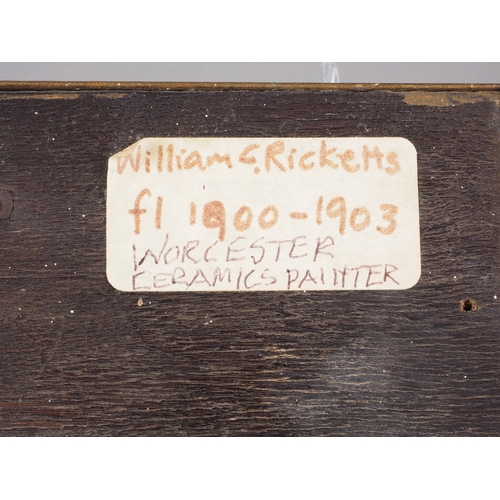 William C. Ricketts
fl 1900-1903
WORCESTER
CERAMICS PAINTER